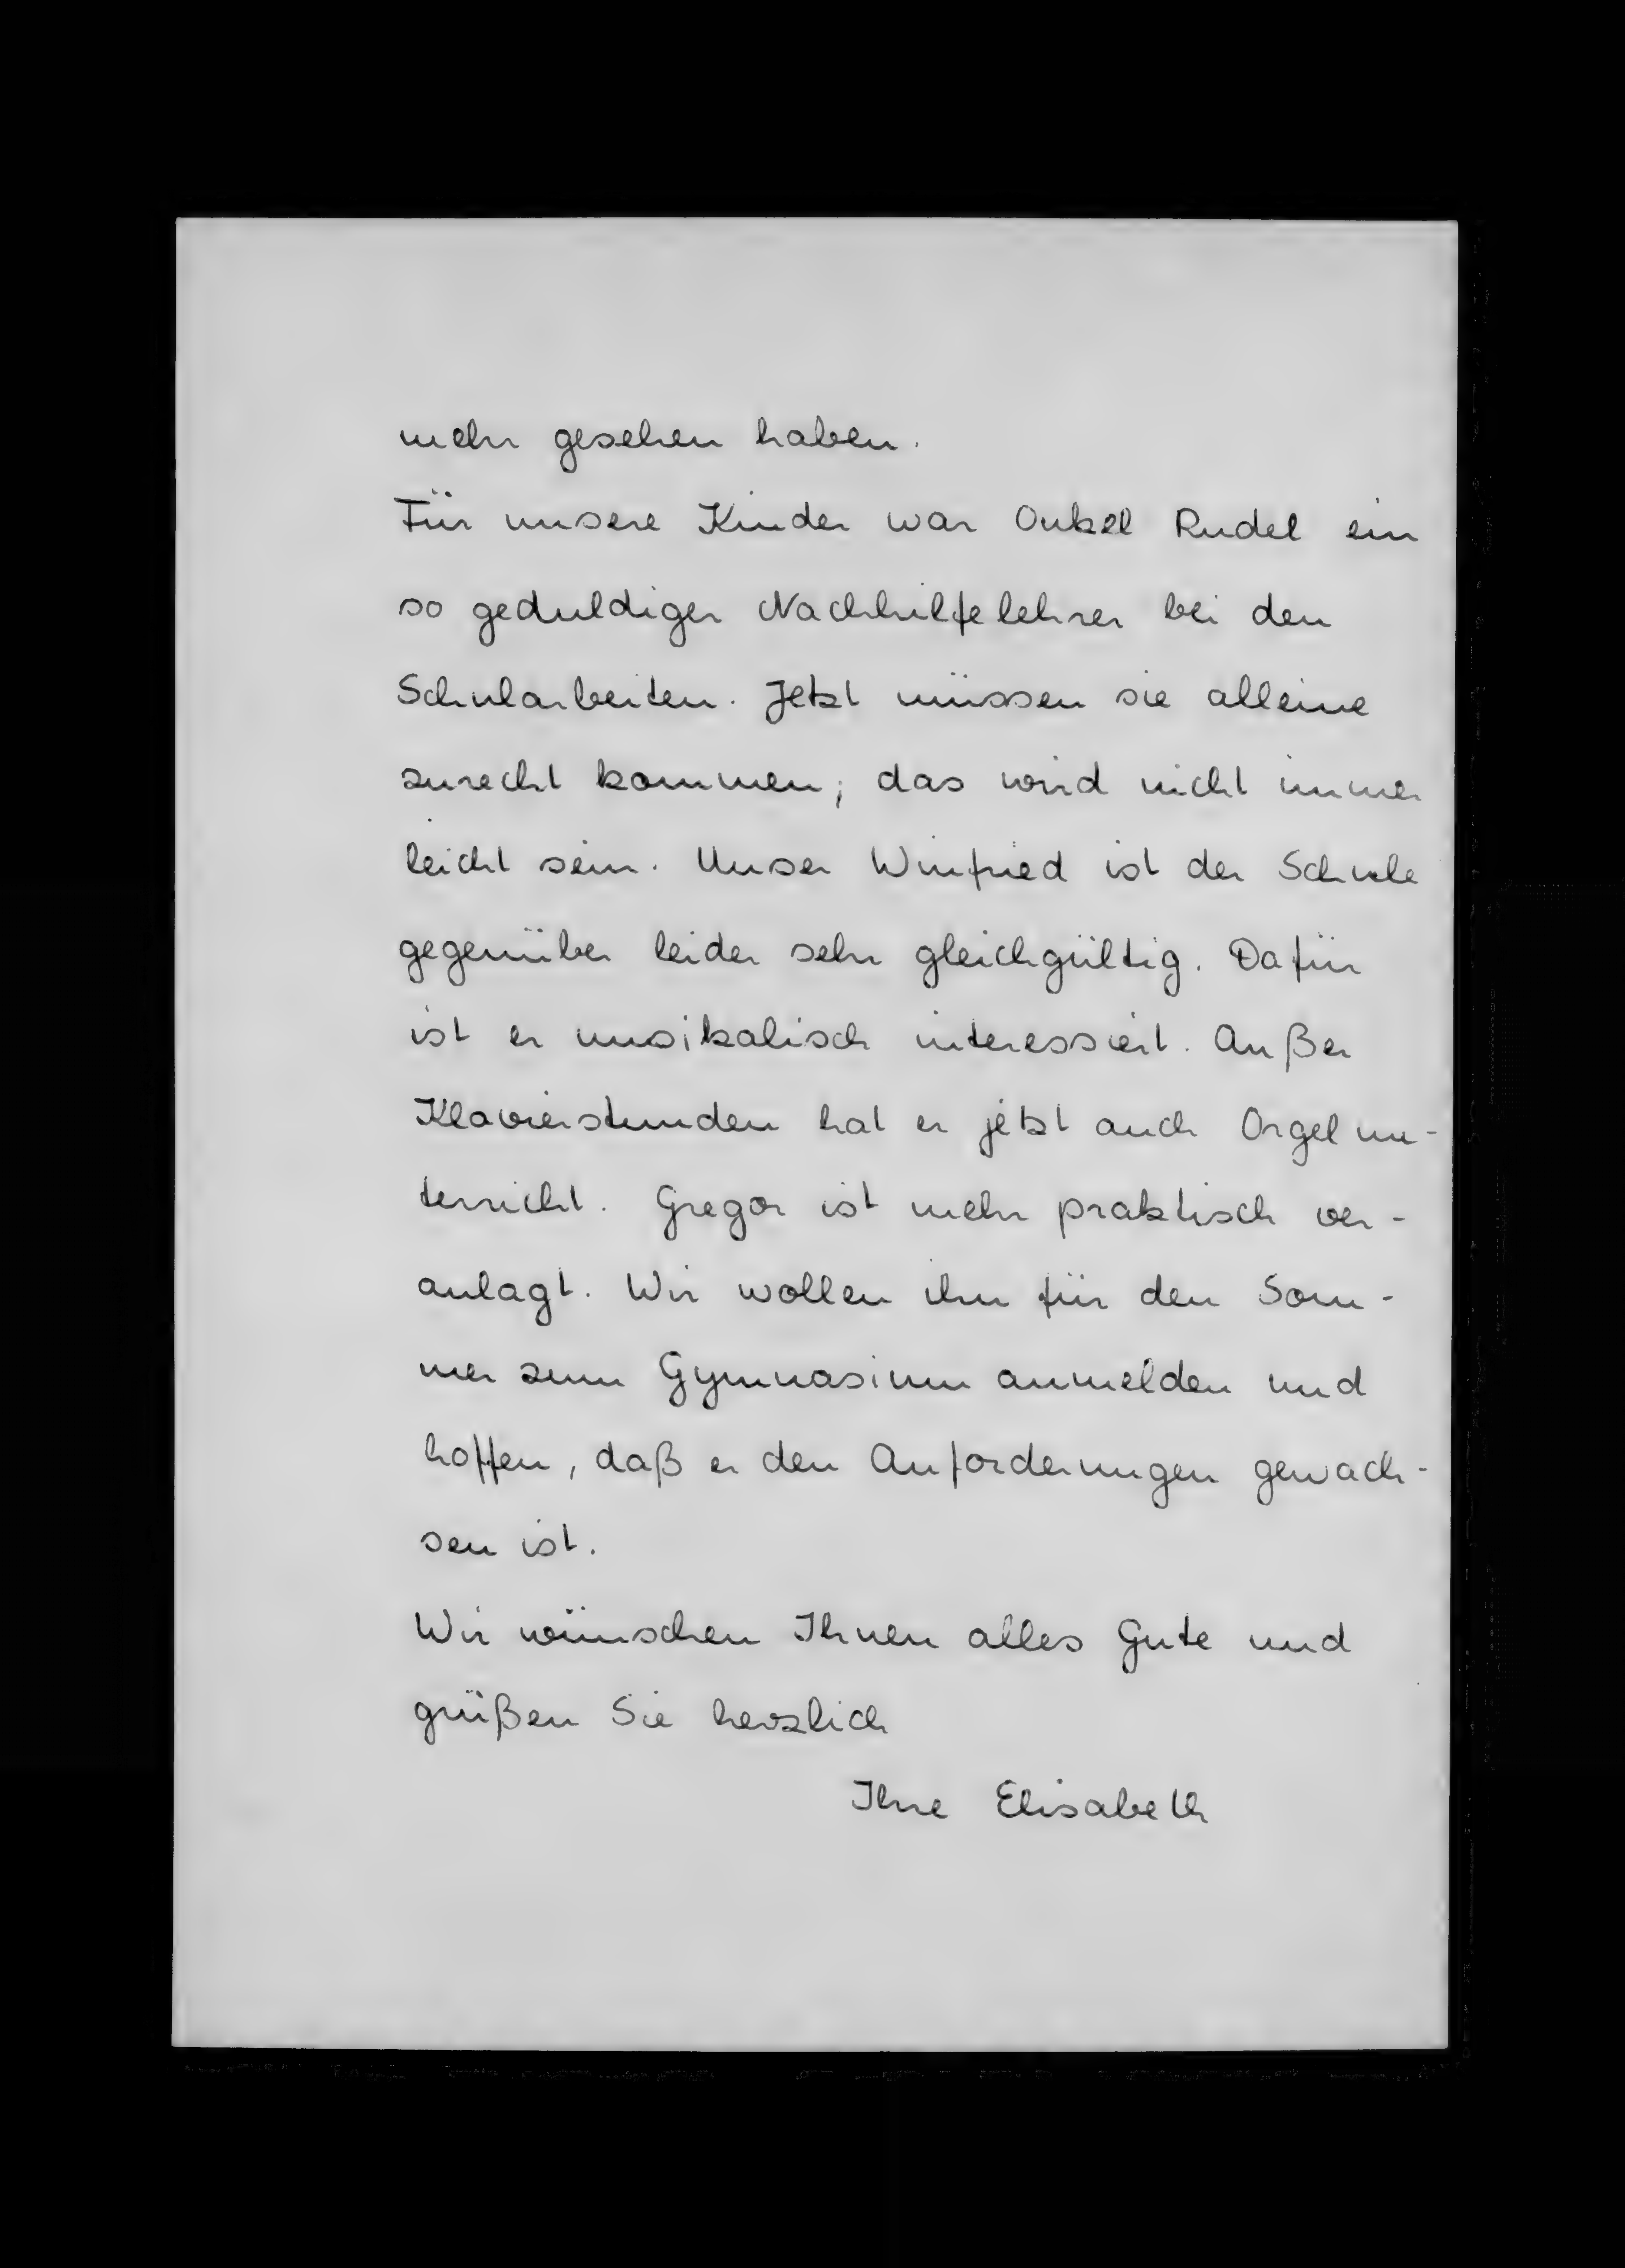 mehr gesehen haben.
Für unsere Kinder war Onkel Rudel ein
so geduldiger Nachhilfelehrer bei den
Schularbeiten. Jetzt müssen sie alleine
zurecht kommen; das wird nicht immer
leicht sein. Unser Winfried ist der Schule
gegenüber leider sehr gleichgültig. Dafür
ist er musikalisch interessiert. Außer
Klavierstunden hat er jetzt auch Orgelun-
terricht. Gregor ist mehr praktisch ver-
anlagt. Wir wollen ihn für den Som-
mer zum Gymnasium anmelden und
hoffen, daß er den Anforderungen gewach-
sen ist.
Wir wünschen Ihnen alles Gute und
grüßen Sie herzlich
Ihre Elisabeth